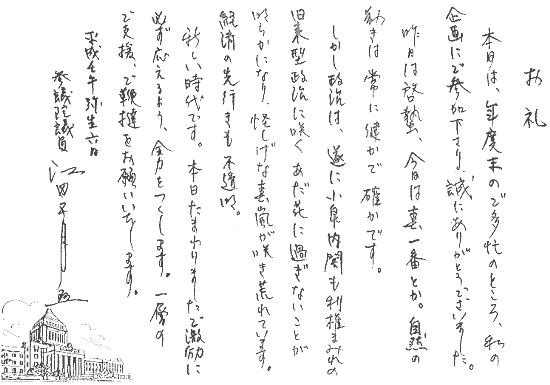 お礼
本日は、年度末のご多忙のところ、私の
企画にご参加下さり、誠にありがとうございました。
昨日は啓蟄、今日は春一番とか。自然の
動きは常に健かで確かです。
しかし政治は、遂に小泉内閣も利権まみれの
旧来型政治に咲くあだ花に過ぎないことが
明らかになり、怪しげな春嵐が吹き荒れています。
経済の先行きも不透明。
新しい時代です。本日たまわりましたご激励に
必ず応えるよう、全力をつくします。一層の
ご支援、ご鞭撻をお願いいたします。
平成壬午弥生六日
参議院議員
江田五月